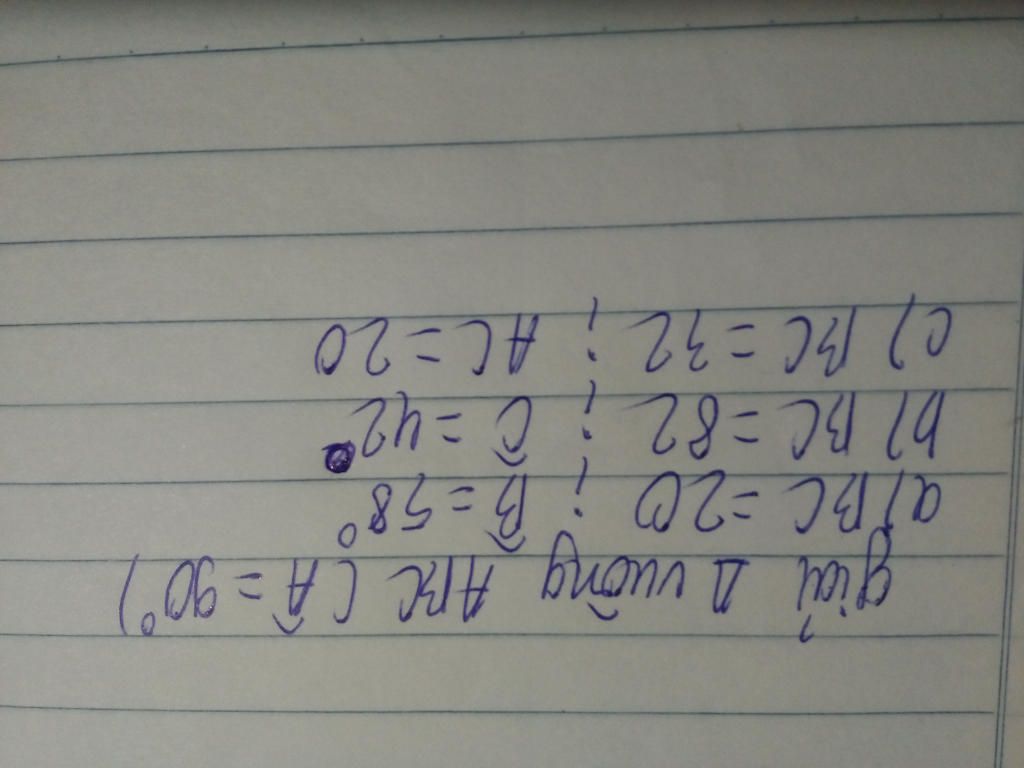 giải Δ vuông ABC (Â = 90°)
a) BC = 20 ; B̂ = 58°
b) BC = 82 ; Ĉ = 42°
c) BC = 32 ; AC = 20